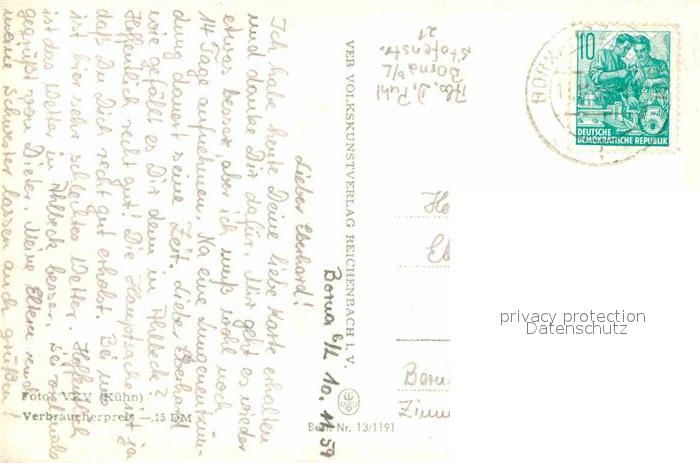 Borna b/L 10. 11. 59
Lieber Eberhard!
Ich habe heute Deine liebe Karte erhalten
und danke Dir dafür. Mir geht es wieder
etwas besser, aber ich muß wohl noch
14 Tage aufnehmen. Na eine Lungenentzün-
dung dauert seine Zeit. Lieber Eberhard
wie gefällt es Dir denn in Ahlbeck?
Hoffentlich recht gut! Die Hauptsache ist ja
daß Du Dich recht gut erholst. Bei uns
ist hier sehr schlechtes Wetter. Hoffentlich
ist das Wetter in Ahlbeck besser. Sei vielmals
gegrüßt von Dieter. Meine Eltern und
meine Schwester lassen auch grüßen!
Foto: VKV (Kühn)
Verbraucherpreis —,15 DM
VEB VOLKSKUNSTVERLAG REICHENBACH i. V.
Best. Nr. 13/1191
Abs. D. Puhl
Borna b/L
21
BORNA
10
5
DEUTSCHE
DEMOKRATISCHE REPUBLIK
He
Eb
privacy protection
Datenschutz